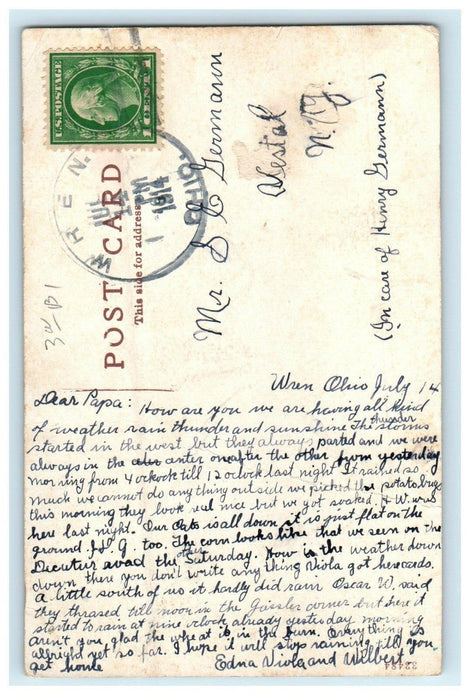 U.S.POSTAGE
1 CENT 1
WREN. OHIO.
JUL
1914
POST CARD
This side for address
Mr. S C Germann
Vestal
N. Y.
(In care of Henry Germann)
Wren Ohio July 14
Dear Papa: How are you we are having all kind
of weather rain thunder and sunshine The thunder storms
started in the west but they always parted and we were
always in the enter one after the other from yesterday
morning from 4 oclock till 12 oclock last night It rained so
much we cannot do any thing outside we picked the potato bugs
this morning they look real nice but we got soaked. H W. was
here last night. Our Oats is all down it is just flat on the
ground J. H. G. too. The corn looks like that we seen on the
Decatur avad the other Saturday. How is the weather down
down there you don't write any thing Viola got her cards.
A little south of us it hardly did rain Oscar W. said
they thrased till noon in the Gaissler corner but here it
started to rain at nine oclock already yesterday morning
aren't you glad the wheat is in the barn. Every thing is
allright yet so far. I hope it will stop raining till you
get home Edna Viola and Wilbert.
32484